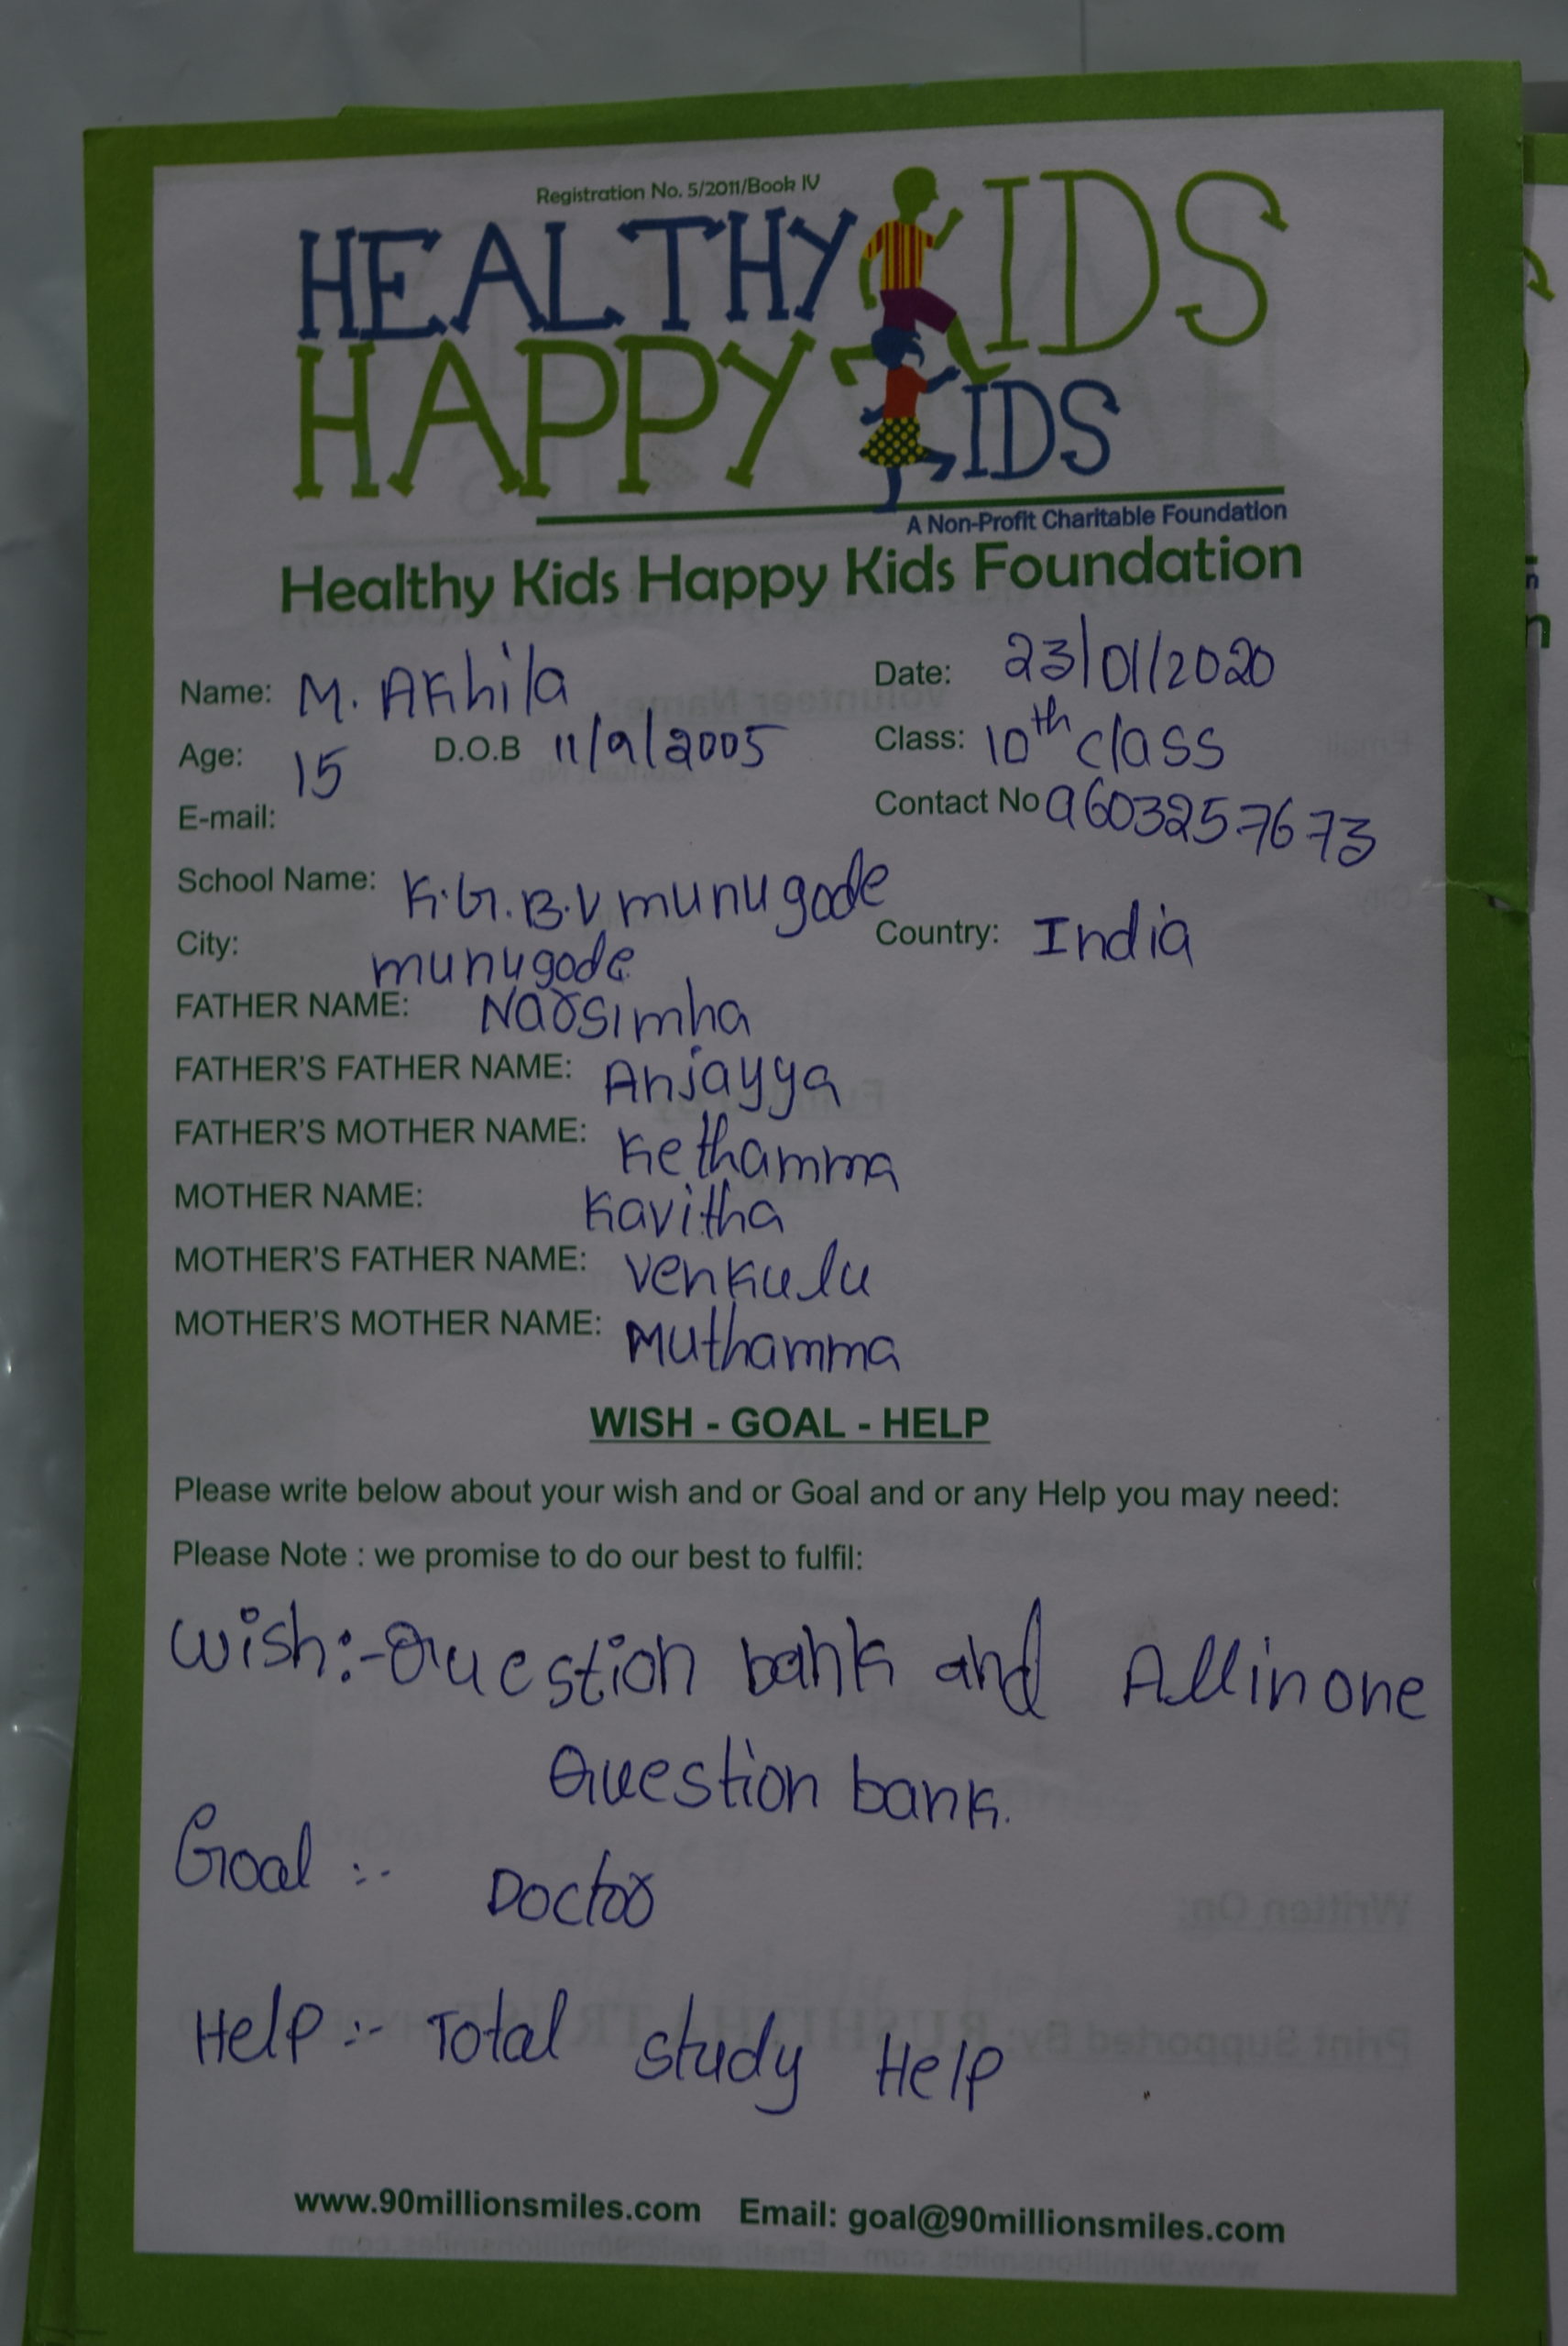 Registration No. 5/2011/Book IV
HEALTHY KIDS
HAPPY KIDS
A Non-Profit Charitable Foundation
Healthy Kids Happy Kids Foundation
Name: M. Akhila Date: 23/01/2020
Age: 15 D.O.B 11/9/2005 Class: 10th class
E-mail: Contact No 9603257673
School Name: K.G.B.V munugode
City: munugode Country: India
FATHER NAME: Narsimha
FATHER'S FATHER NAME: Anjayya
FATHER'S MOTHER NAME: Kethamma
MOTHER NAME: Kavitha
MOTHER'S FATHER NAME: Venkulu
MOTHER'S MOTHER NAME: Muthamma
WISH - GOAL - HELP
Please write below about your wish and or Goal and or any Help you may need:
Please Note : we promise to do our best to fulfil:
Wish:- Question bank and All in one
Question bank.
Goal :- Doctor
Help :- Total study Help
www.90millionsmiles.com Email: goal@90millionsmiles.com